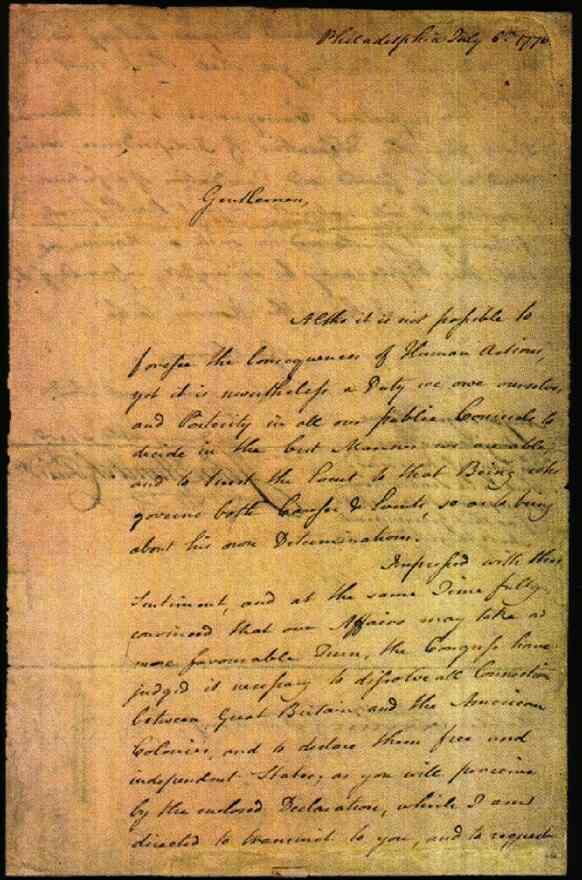 Philadelphia July 6th 1776.
Gentlemen,
Altho it is not possible to
foresee the Consequences of Human Actions,
yet it is nevertheless a Duty we owe ourselves
and Posterity in all our public Counsels to
decide in the best Manner we are able
and to trust the Event to that Being who
governs both Causes & Events, so as to bring
about his own Determinations.
Impressed with this
Sentiment, and at the same Time fully
convinced that our Affairs may take a
more favourable Turn, the Congress have
judged it necessary to dissolve all Connection
between Great Britain and the American
Colonies, and to declare them free and
independent States; as you will perceive
by the enclosed Declaration, which I am
directed to transmit to you, and to request